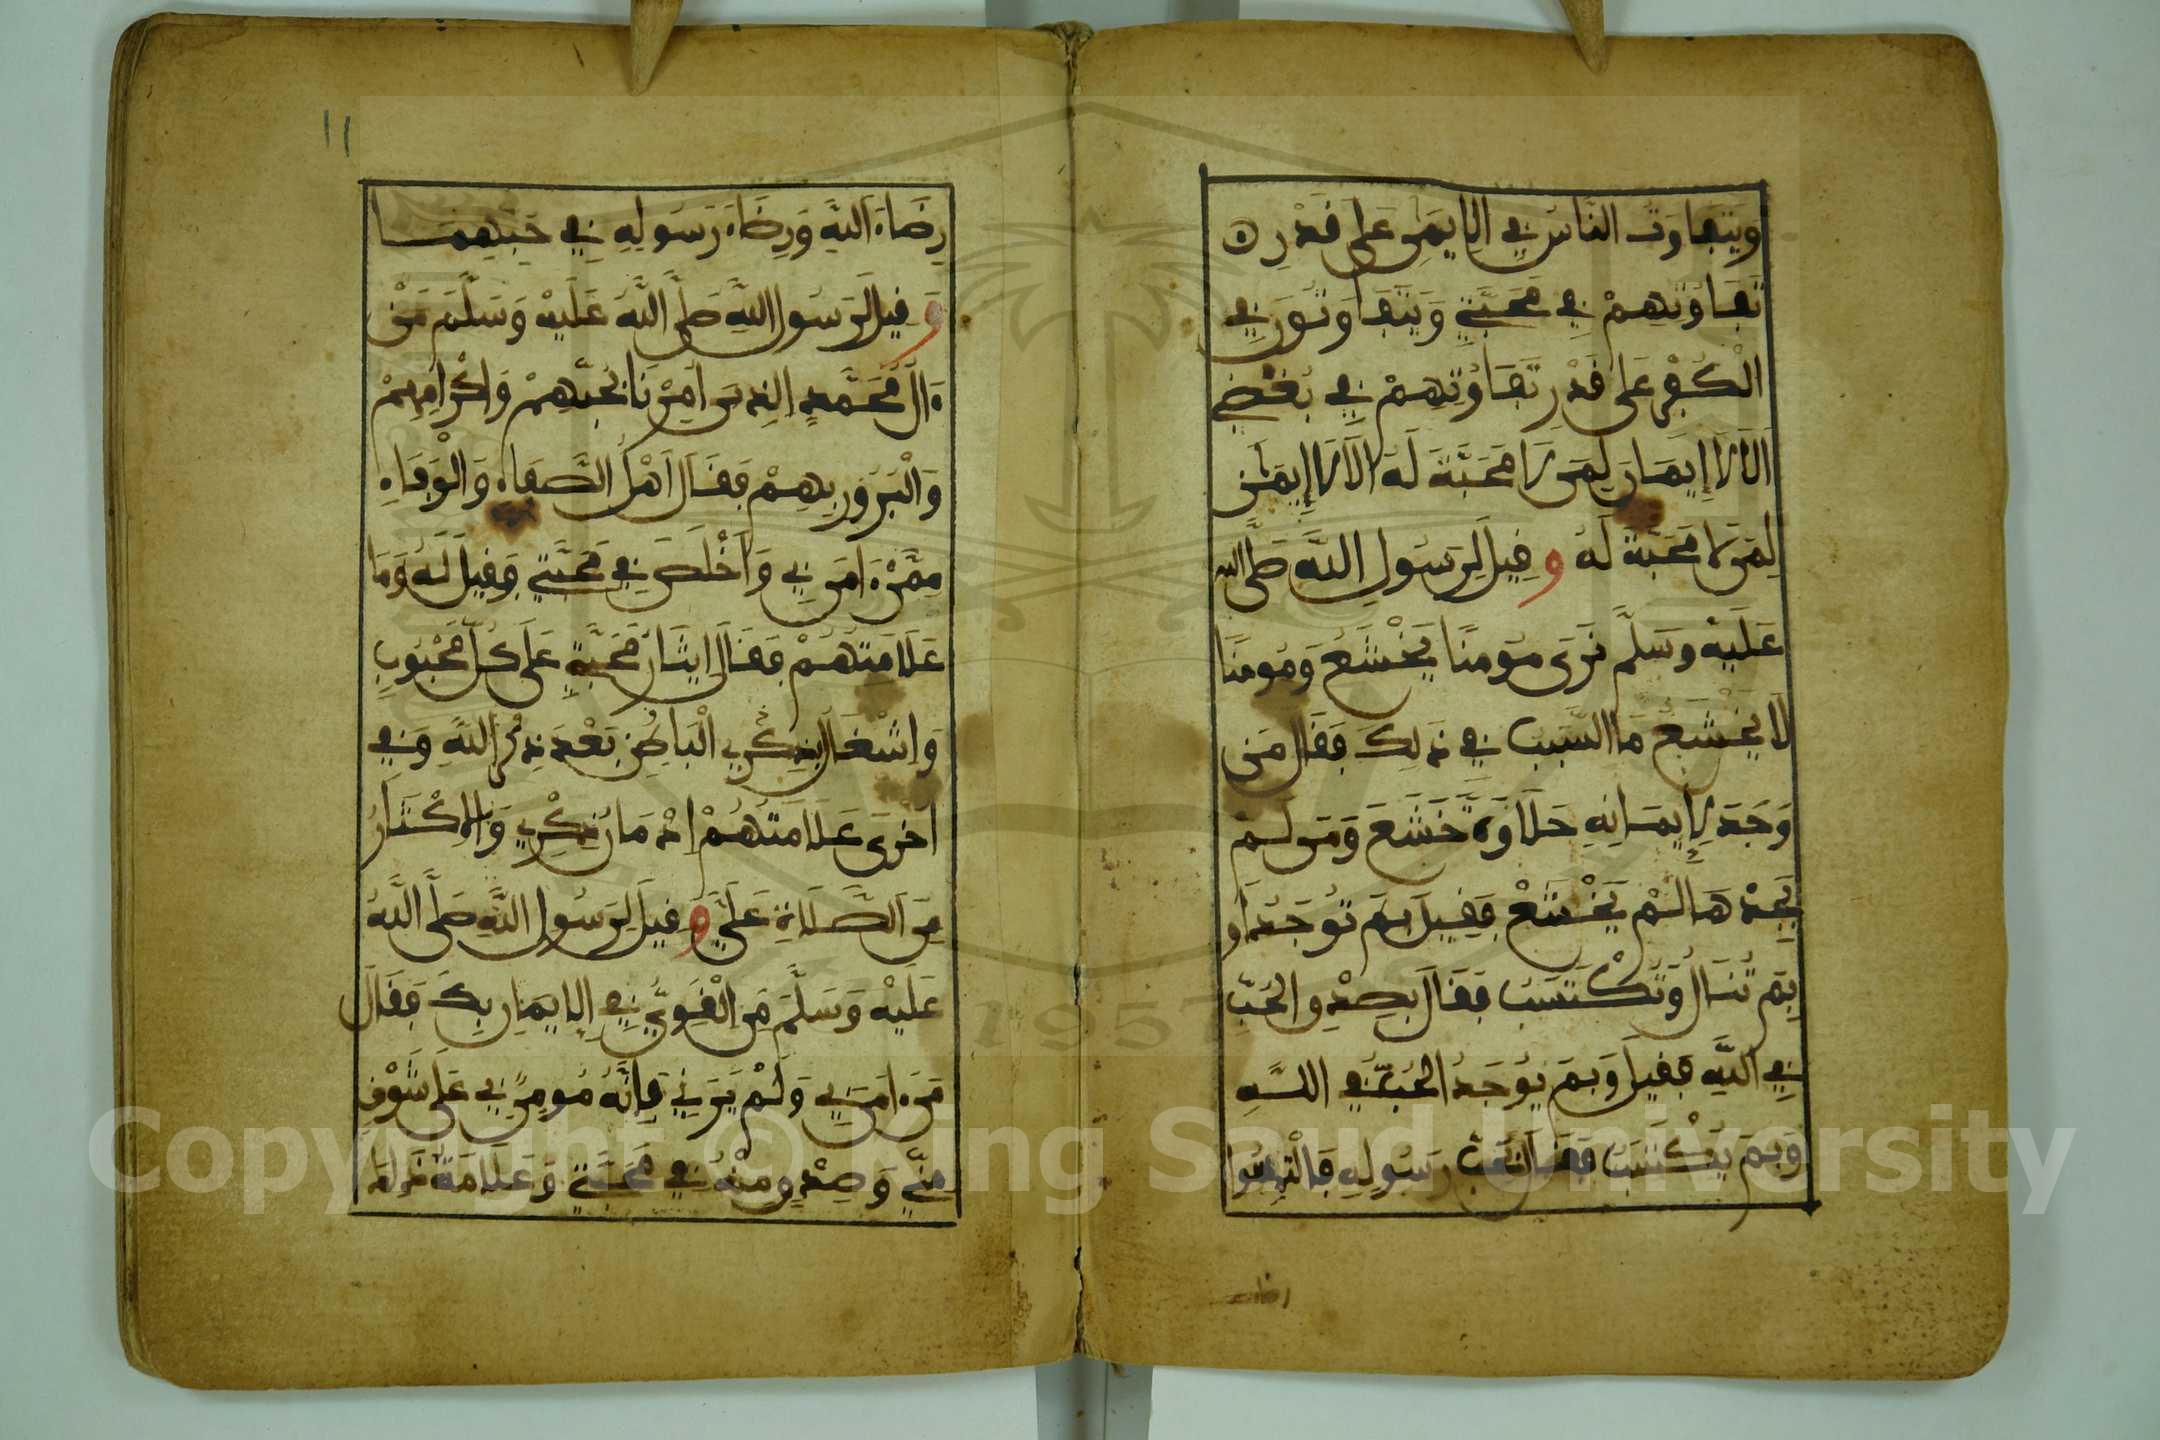 وَيَتَفَاوَتُ النَّاسُ فِي الِايمَنِ عَلَى قَدْرِ
تَفَاوُتِهِمْ فِي مَحَبَّتِي وَيَتَفَاوَتُونَ فِي
الْكُفْرِ عَلَى قَدْرِ تَفَاوُتِهِمْ فِي بُغْضِي
اَلَا لَا إِيمَانَ لِمَن لَا مَحَبَّةَ لَهُ اَلَا لَا إِيمَٰنَ
لِمَن لَا مَحَبَّةَ لَهُ وقِيلَ لِرَسُولِ اللَّهِ صَلَّى الله
عَلَيْهِ وَسَلَّمَ نَرَى مُومِنًا يَخْشَعُ وَمُومِنًا
لَا يَخْشَعُ مَا السَّبَبُ فِي ذَلِكَ فَقَالَ مَن
وَجَدَ لِإِيمَانِهِ حَلَاوَةً خَشَعَ وَمَن لَمْ
يَجِدْهَا لَمْ يَخْشَعْ فَقِيلَ بِمَ تُوجَدُ أَو
بِمَ تُنَالُ وَتُكْتَسَبُ فَقَالَ بِصِدْقِ الحُبِّ
فِي اللَّهِ فَقِيلَ وَبِمَ يُوجَدُ الحُبُّ فِي اللَّهِ
وَبِمَ يُكْتَسَبُ فَقَالَ بِحُبِّ رَسُولِهِ فَالْتَمِسُوا
رضاء
١١
رِضَاءَ اللَّهِ وَرِضَاءَ رَسُولِهِ فِي حُبِّهِمَا
وَقِيلَ لِرَسُولِ اللَّهِ صَلَّى اللَّهُ عَلَيْهِ وَسَلَّمَ مَنْ
ءَالُ مُحَمَّدٍ الذِينَ أُمِرْنَا بِحُبِّهِمْ وَإِكْرَامِهِمْ
وَالْبُرُورِ بِهِمْ فَقَالَ أَهْلُ الصَّفَاءِ وَالْوَفَاءِ
مِمَّنْ ءَامَنَ بِي وَأَخْلَصَ فِي مَحَبَّتِي فَقِيلَ لَهُ وَمَا
عَلَامَتُهُمْ فَقَالَ إِيثَارُ مَحَبَّتِي عَلَى كُلِّ مَحْبُوبٍ
وَاشْتِغَالُ الْبَاطِنِ بِذِكْرِي بَعْدَ ذِكْرِ اللَّهِ وَفِي
أُخْرَى عَلَامَتُهُمْ إِدْمَانُ ذِكْرِي وَالْإِكْثَارُ
مِنَ الصَّلَاةِ عَلَيَّ وَقِيلَ لِرَسُولِ اللَّهِ صَلَّى اللَّهُ
عَلَيْهِ وَسَلَّمَ مَنِ الْقَوِيُّ فِي الِايمَانِ بِكَ فَقَالَ
مَنْ ءَامَنَ بِي وَلَمْ يَرَنِي فَإِنَّهُ مُومِنٌ بِي عَلَى شَوْقٍ
مِنِّي وَصِدْقٍ مِنْهُ فِي مَحَبَّتِي وَعَلَامَةُ ذَلِكَ
1957
Copyright © King Saud University